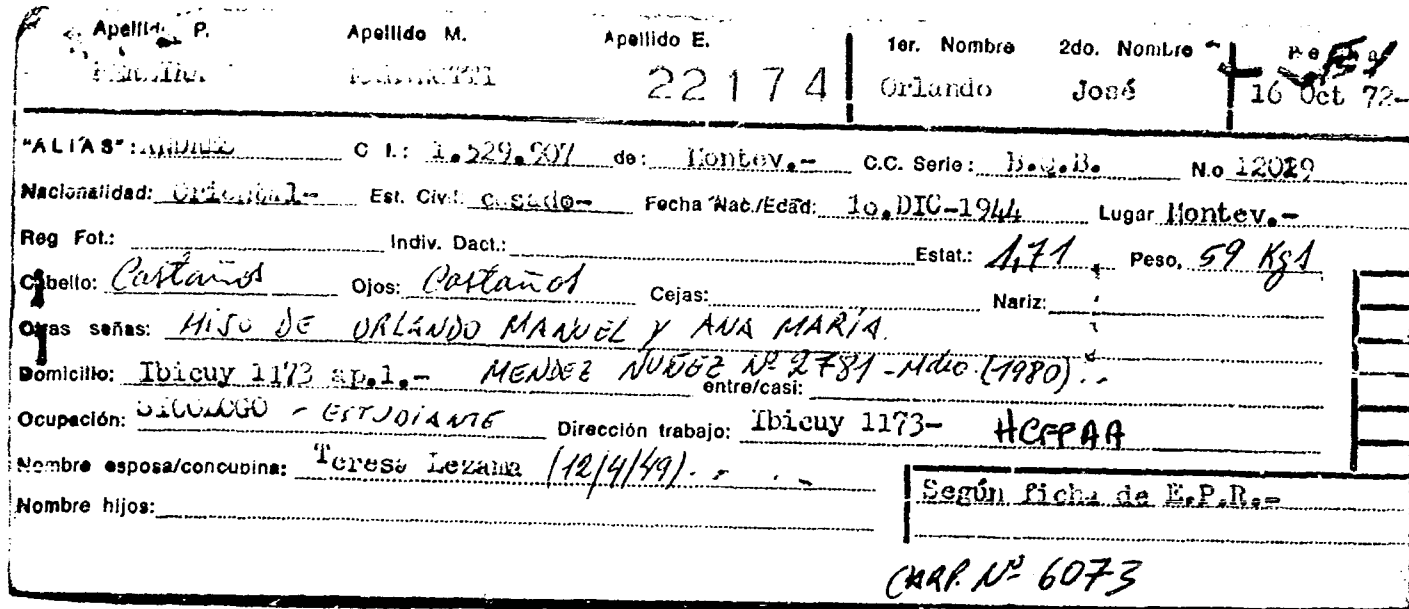 Apellido P. Apellido M. Apellido E. 1er. Nombre 2do. Nombre
22174 Orlando José 16 Oct 72-
"ALIAS": C I.: 1.529.907 de: Montev.- C.C. Serie: B.Q.B. N.o 12029
Nacionalidad: Oriental- Est. Civil: casado- Fecha Nac./Edad: 1o.DIC-1944 Lugar Montev.-
Reg Fot.: Indiv. Dact.: Estat.: 1,71 Peso, 59 Kgs
Cabello: Castaños Ojos: Castaños Cejas: Nariz:
Otras señas: HIJO DE ORLANDO MANUEL Y ANA MARÍA.
Domicilio: Ibicuy 1173 ap.1.- MENDEZ NUÑEZ Nº 2781 - Mdeo. (1980).. entre/casi:
Ocupación: SICOLOGO - ESTUDIANTE Dirección trabajo: Ibicuy 1173- HCFFAA
Nombre esposa/concubina: Teresa Lezama (12/4/49).-
Nombre hijos: Según ficha de E.P.R.-
CARP. Nº 6073